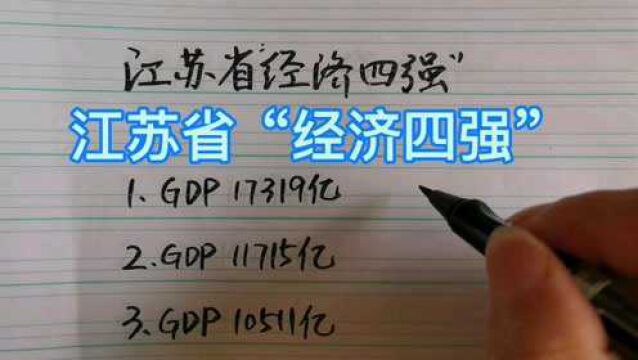 江苏省“经济四强”
江苏省“经济四强”
1、GDP 17319亿
2、GDP 11715亿
3、GDP 10511亿